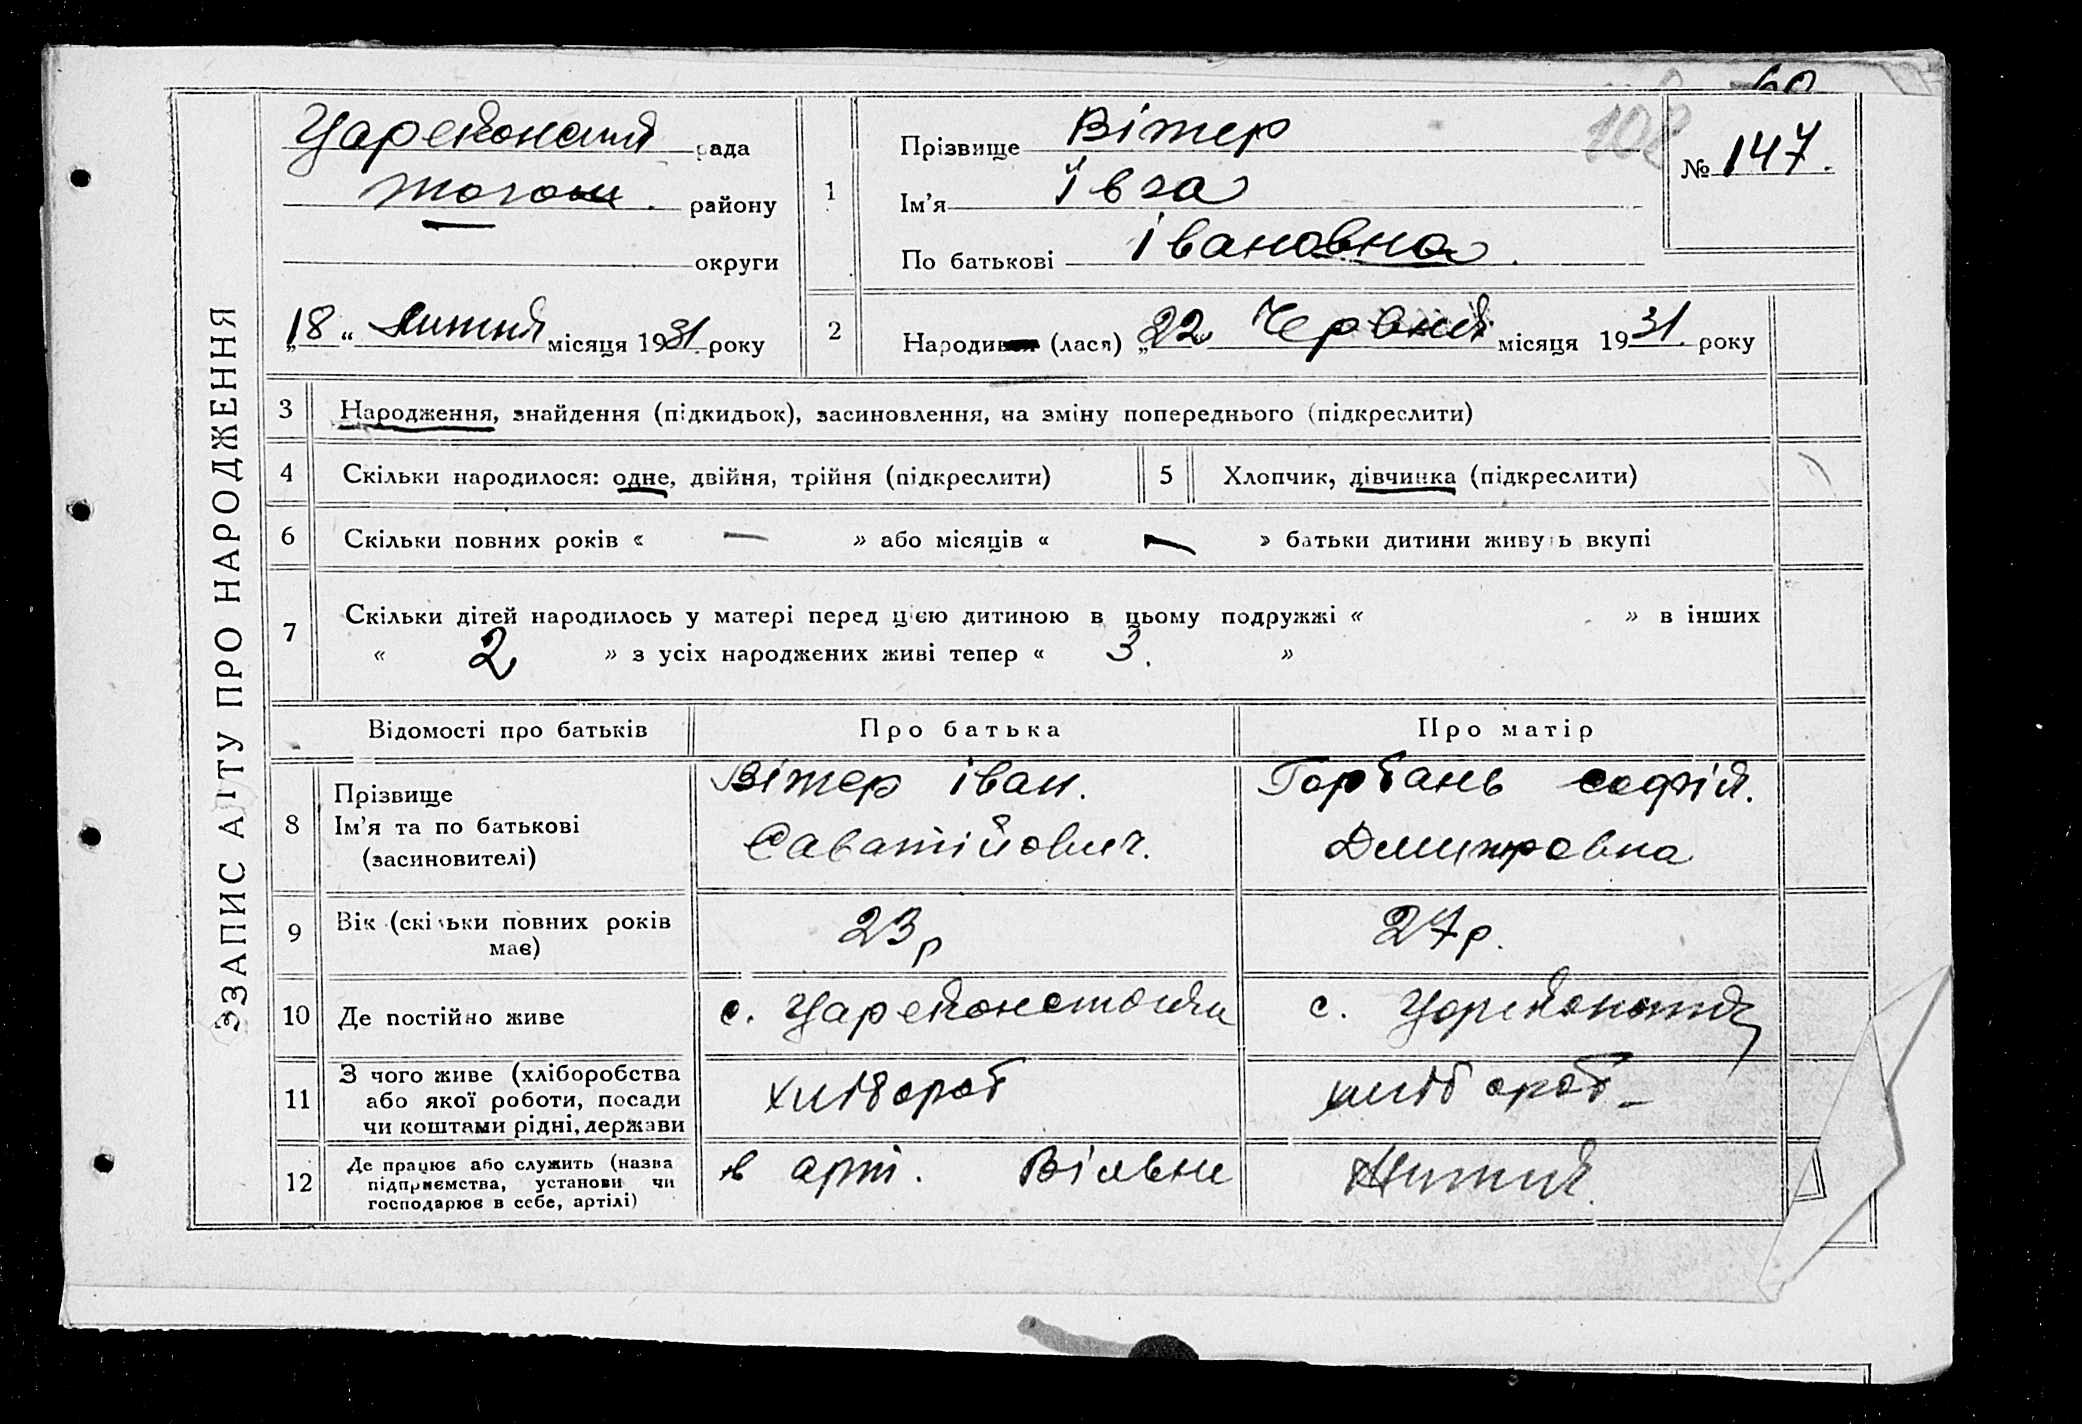 60
ЗЗАПИС АКТУ ПРО НАРОДЖЕННЯ
рада
району
округи
„18“ Липня місяця 1931 року
1
Прізвище Вітер
Ім’я Івга
По батькові Івановна.
108
№ 147.
2
Народився (лася) „22 Червня місяця 1931. року
3 Народження, знайдення (підкидьок), засиновлення, на зміну попереднього (підкреслити)
4 Скільки народилося: одне, двійня, трійня (підкреслити) 5 Хлопчик, дівчинка (підкреслити)
6 Скільки повних років « — » або місяців « — » батьки дитини живуть вкупі
7 Скільки дітей народилось у матері перед цією дитиною в цьому подружжі « » в інших
« 2 » з усіх народжених живі тепер « 3. »
Відомості про батьків Про батька Про матір
8 Прізвище Ім’я та по батькові (засиновителі)
Вітер Іван. Саватійович.
Горбань Софія. Дмитровна
9 Вік (скільки повних років має)
23 р
27 р.
10 Де постійно живе
с.
с.
11 З чого живе (хліборобства або якої роботи, посади чи коштами рідні, держави
хлібороб
хлібороб –
12 Де працює або служить (назва підприємства, установи чи господарює в себе, артілі)
в арт. Вільне
Життя.